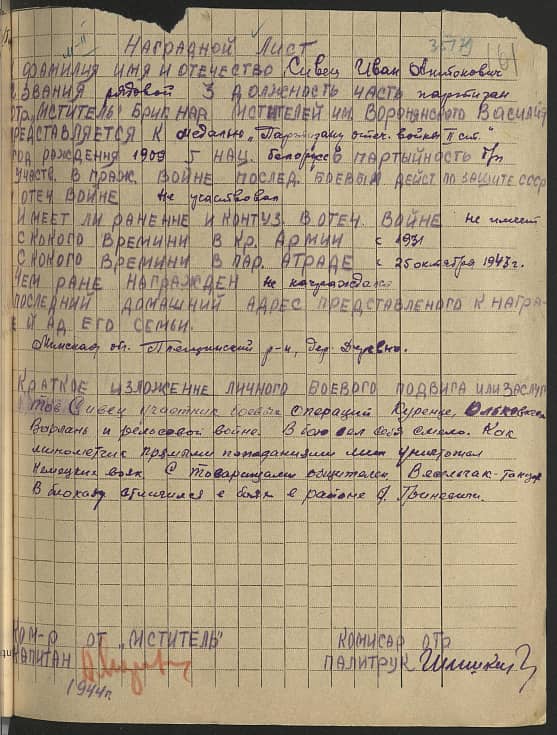 3579
161
Наградной Лист
1 фамилия имя и отечество Сивец Иван Антонович
2. звания рядовой 3 должность часть партизан
отр. "Мститель" Бриг. Нар. Мстителей им. Воронянского Василия
представляется к медалью "Партизану отеч. войны II ст."
год раждения 1909 5 нац. белорус 6 партыйность б/п
участв. в граж. войне послед. боевых дейст по защите СССР
и отеч войне не участвовал
имеет ли ранение и контуз. в отеч. войне не имеет
с кокого времини в Кр. Армии с 1931
с кокого времини в пар. атраде с 25 октября 1943 г.
чем ране награжден не награждался
последний домашний адрес представленого к награ-
де и ад. его семьи.
Минская обл. Плещинский р-н, дер.
Краткое изложение личного боевого подвига или заслуг
тов Сивец участник боевых операций Куренец, Ольковичи
и рельсовой войне. В бою вел себя смело. Как
минометчик прямыми попаданиями мин уничтожал
немецких вояк. С товарищами общителен.
В блокаду отличился в боях в районе д.
Ком-р от "Мститель" Комисар отр
Капитан Палитрук
1944 г.